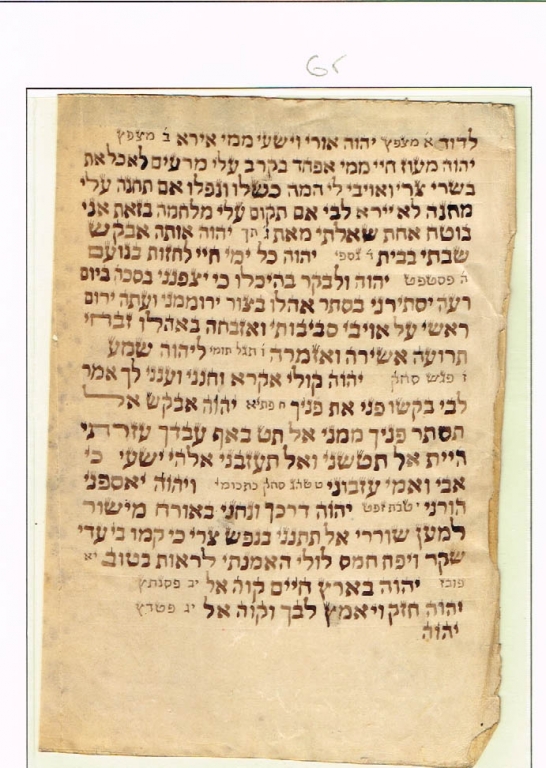 6r
לדוד א מצפץ יהוה אורי וישעי ממי אירא ב מצפץ
יהוה מעוז חיי ממי אפחד בקרב עלי מרעים לאכל את
בשרי צרי ואויבי לי המה כשלו ונפלו אם תחנה עלי
מחנה לא יירא לבי אם תקום עלי מלחמה בזאת אני
בוטח אחת שאלתי מאת יהוה אותה אבקש
שבתי בבית יהוה כל ימי חיי לחזות בנועם
ה פסטפט יהוה ולבקר בהיכלו כי יצפנני בסכה ביום
רעה יסתירני בסתר אהלו בצור ירוממני ועתה ירום
ראשי על אויבי סביבותי ואזבחה באהלו זבחי
תרועה אשירה ואזמרה ליהוה שמע
יהוה קולי אקרא וחנני וענני לך אמר
לבי בקשו פני את פניך יהוה אבקש אל
תסתר פניך ממני אל תט באף עבדך עזרתי
היית אל תטשני ואל תעזבני אלהי ישעי כי
אבי ואמי עזבוני ויהוה יאספני
הורני יהוה דרכך ונחני באורח מישור
למען שוררי אל תתנני בנפש צרי כי קמו בי עדי
שקר ויפח חמס לולי האמנתי לראות בטוב יא
יהוה בארץ חיים קוה אל יב
יהוה חזק ויאמץ לבך וקוה אל יג
יהוה